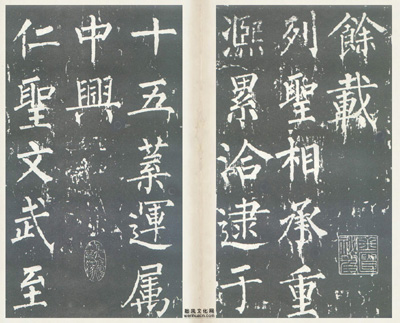 餘載
列聖相承重
熙累洽逮于
十五葉運属
中興
仁聖文武至